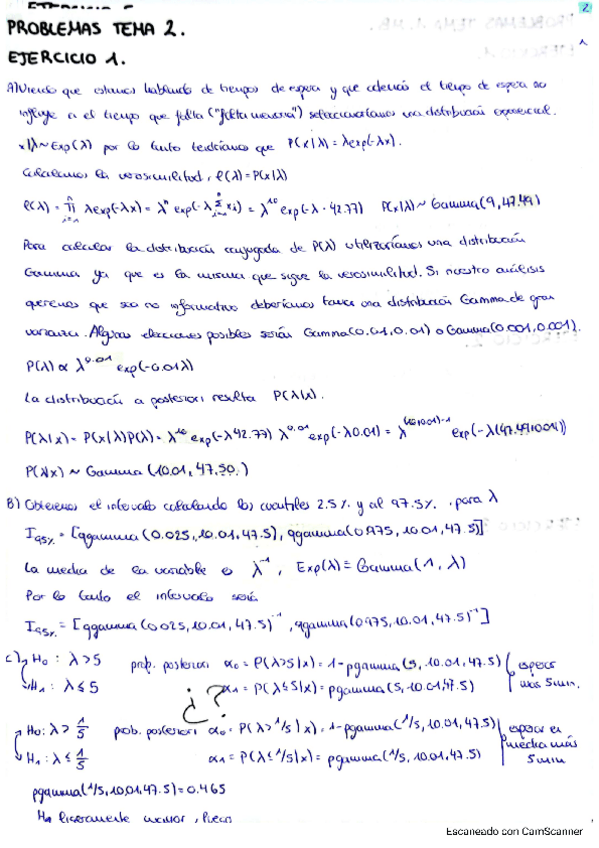 2
PROBLEMAS TEMA 2.
EJERCICIO 1.
A) Viendo que estamos hablando de tiempos de espera y que además el tiempo de espera no
influye en el tiempo que falta ("falta memoria") seleccionaríamos una distribución exponencial.
x|λ ~ Exp(λ) por lo tanto tendríamos que P(x|λ) = λexp(-λx).
Calculamos la verosimilitud, ℓ(λ) = P(x|λ)
ℓ(λ) = ∏ λexp(-λx) = λⁿ exp(-λ Σ xi) = λ¹⁰ exp(-λ · 42.77) P(x|λ) ~ Gamma(9, 47.49)
Para calcular la distribución conjugada de P(λ) utilizaríamos una distribución
Gamma ya que es la misma que sigue la verosimilitud. Si nuestro análisis
queremos que sea no informativo deberíamos tomar una distribución Gamma de gran
varianza. Algunas elecciones posibles serían Gamma(0.01, 0.01) o Gamma(0.001, 0.001).
P(λ) ∝ λ^0.01 exp(-0.01λ)
La distribución a posteriori resulta P(λ|x).
P(λ|x) = P(x|λ)P(λ) = λ¹⁰ exp(-λ42.77) λ^0.01 exp(-λ0.01) = λ exp(-λ(47.49+0.01))
P(λ|x) ~ Gamma (10.01, 47.50.)
B) Obtenemos el intervalo calculando los cuantiles 2.5% y al 97.5%. para λ
I95% = [qgamma(0.025, 10.01, 47.5), qgamma(0.975, 10.01, 47.5)]
La media de la variable es λ⁻¹, Exp(λ) = Gamma(1, λ)
Por lo tanto el intervalo será
I95% = [qgamma(0.025, 10.01, 47.5)⁻¹, qgamma(0.975, 10.01, 47.5)⁻¹]
C) H₀ : λ > 5 prob. posteriori α₀ = P(λ>5|x) = 1-pgamma(5, 10.01, 47.5) esperar
H₁ : λ ≤ 5 ¿? α₁ = P(λ≤5|x) = pgamma(5, 10.01, 47.5) más 5min.
H₀: λ > 1/5 prob. posteriori α₀ = P(λ > 1/5|x) = 1-pgamma(1/5, 10.01, 47.5) esperar en
H₁ : λ ≤ 1/5 α₁ = P(λ ≤ 1/5|x) = pgamma(1/5, 10.01, 47.5) media más
5min
pgamma(1/5, 10.01, 47.5) = 0.465
ligeramente
Escaneado con CamScanner